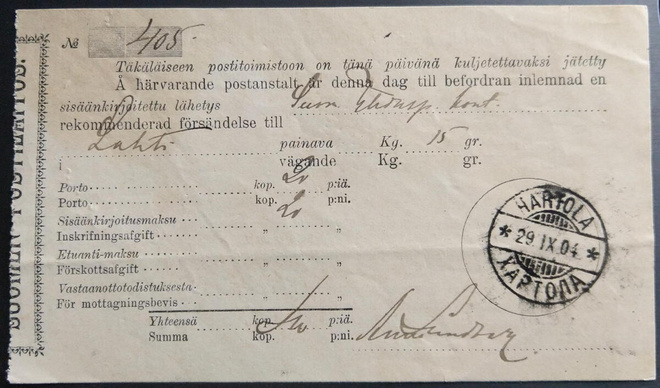 № 405
Täkäläiseen postitoimistoon on tänä päivänä kuljetettavaksi jätetty
Å härvarande postanstalt är denna dag till befordran inlemnad en
sisäänkirjoitettu lähetys
rekommenderad försändelse till
Lahti painava Kg. 15 gr.
i vägande Kg. gr.
Porto kop. 20 p:iä.
Porto kop. 20 p:ni.
Sisäänkirjoitusmaksu " "
Inskrifningsafgift " "
Etuanti-maksu " "
Förskottsafgift " "
Vastaanottotodistuksesta " "
För mottagningsbevis " "
Yhteensä kop. p:iä.
Summa kop. p:ni.
HARTOLA
* 29 IX 04 *
ХАРТОЛА
SUOMEN POSTILAITOS.